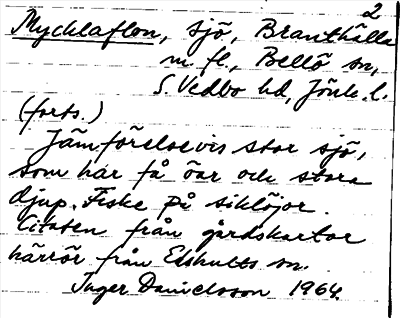 2
Mycklaflon, sjö, Branthälla
m. fl., Bellö sn,
S. Vedbo hd, Jönk. l.
(forts.)
Jämförelsevis stor sjö,
som har få öar och stora
djup. Fiske på siklöjor.
Citaten från gårdskartor
härrör från Edshults sn.
Inger Danielsson 1964.